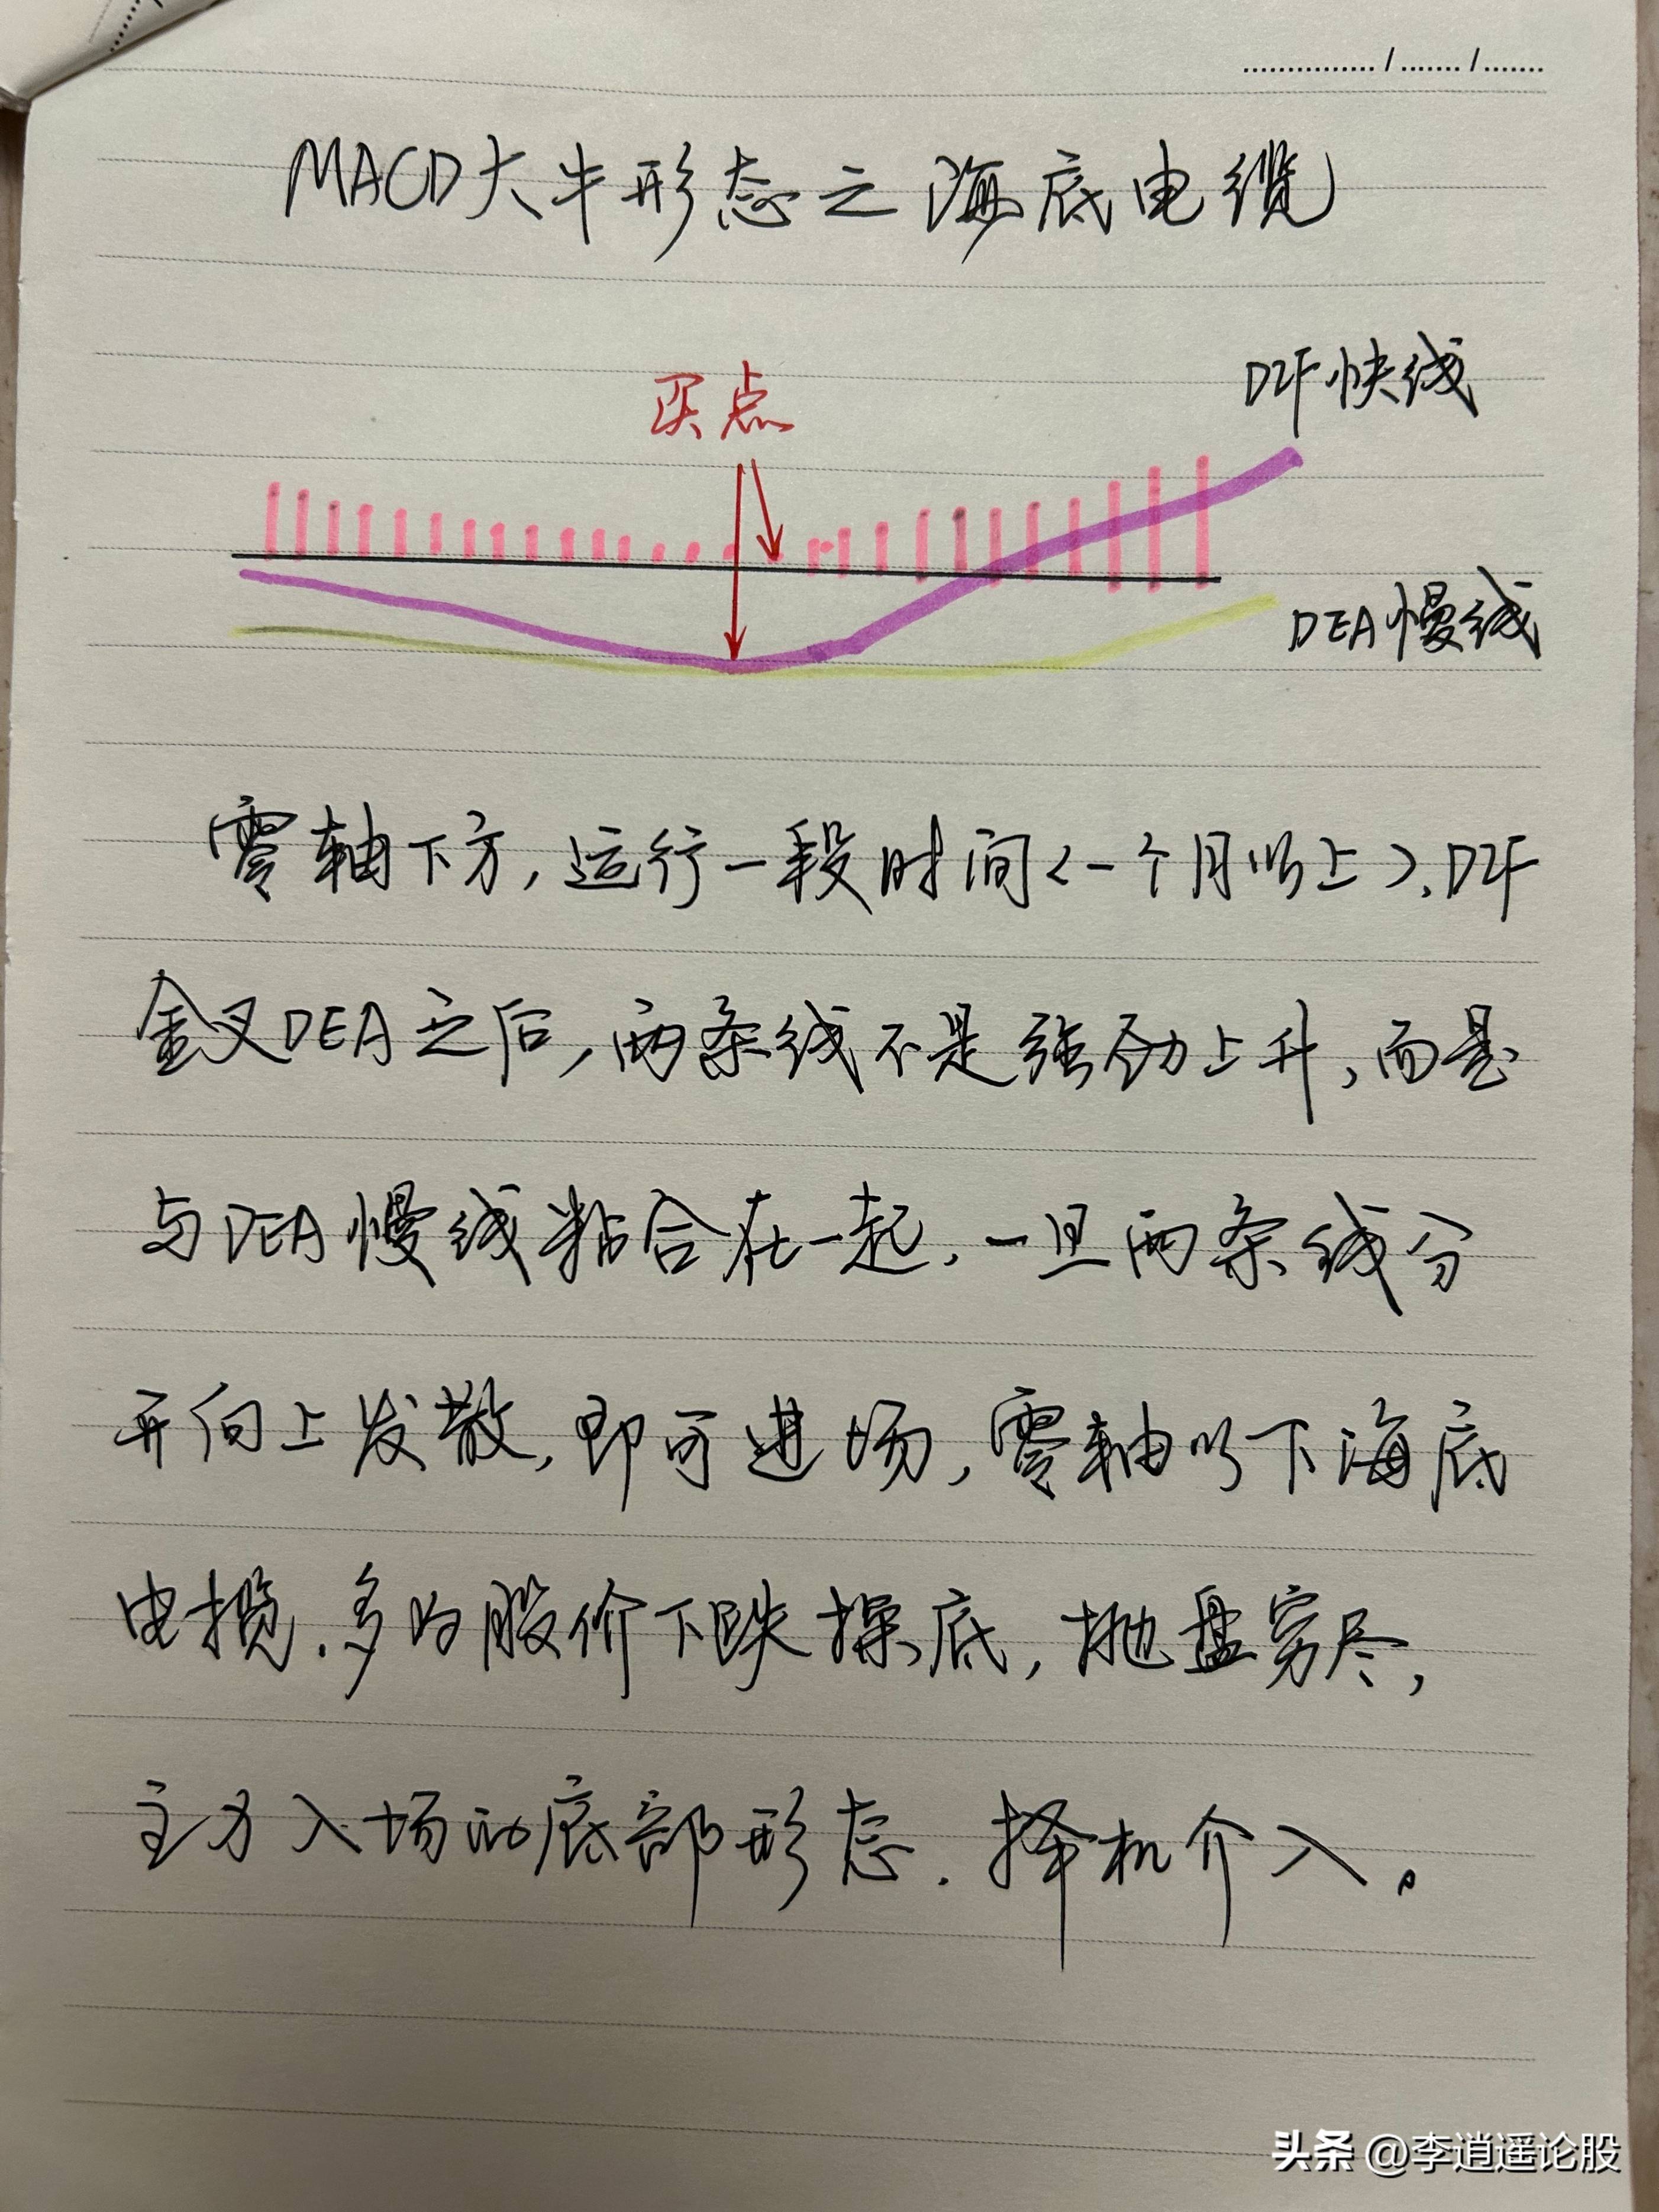 ............... / ....... / .......
MACD大牛形态之海底电缆
DIF快线
买点
DEA慢线
零轴下方,运行一段时间<一个月以上>.DIF
金叉DEA之后,两条线不是强劲上升,而是
与DEA慢线粘合在一起.一旦两条线分
开向上发散,即可进场,零轴以下海底
电揽.多为股价下跌探底,抛盘穷尽,
主力入场的底部形态.择机介入。
头条 @李逍遥论股